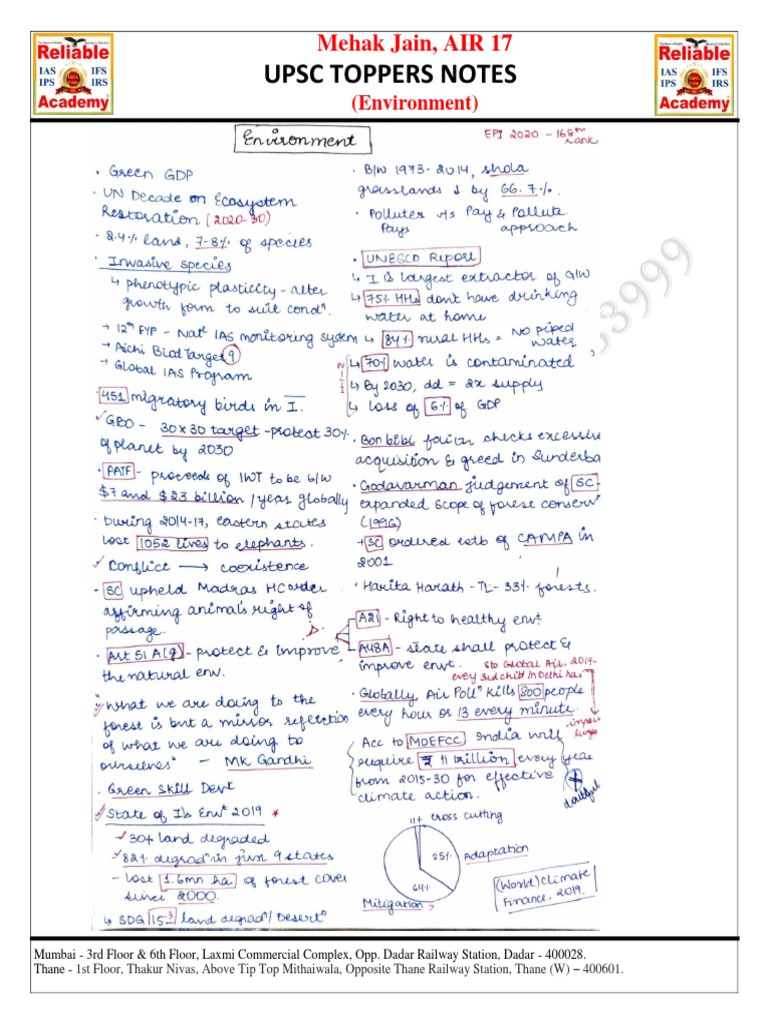 Mehak Jain, AIR 17
UPSC TOPPERS NOTES
(Environment)
Reliable
IAS IFS
IPS IRS
Academy
Reliable
IAS IFS
IPS IRS
Academy
Environment
EPI 2020 - 168th rank
• Green GDP
• UN Decade on Ecosystem
Restoration (2020-30)
• 2.4% land, 7-8% of species
• Invasive species
↳ phenotypic plasticity - alter
growth form to suit condn.
→ 12th FYP - Natl IAS monitoring system
→ Aichi Biod Target 9
→ Global IAS Program
• 451 migratory birds in I.
✓ GBO - 30x30 target - protect 30%
of planet by 2030
• FATF - proceeds of IWT to be b/w
$7 and $23 billion / year globally
• During 2014-17, eastern states
lost 1052 lives to elephants.
✓ Conflict → coexistence
• SC upheld Madras HC order
affirming animal's right of
passage.
• Art 51 A(g) - protect & improve
the natural env.
"What we are doing to the
forest is but a mirror reflection
of what we are doing to
ourselves" - MK Gandhi
• Green Skill Devt
• State of I's Envt 2019 *
✓ 30% land degraded
✓ 82% degradn in just 9 states
- lost 1.6mn ha of forest cover
since 2000.
↳ SDG 15.3 land degradn / Desertn
• B/W 1973-2014, shola
grasslands ↓ by 66.7%.
• Polluter v/s Pay & Pollute
Pays approach
• UNESCO Report
↳ I is largest extractor of G/W
↳ 75% HHs don't have drinking
water at home
↳ 84% rural HHs = No piped
water
↳ 70% water is contaminated
↳ By 2030, dd = 2x supply
↳ loss of 6% of GDP
• Bon bibi faith checks excessive
acquisition & greed in Sunderba
• Godavarman judgement of SC -
expanded scope of forest conserv
(1996)
→ SC ordered estb of CAMPA in
2001
• Harita Harath - TL - 33% forests.
A21 - Right to healthy envt
A48A - state shall protect &
improve envt.
Sto Global Air, 2019 -
every 3rd child in Delhi has
• Globally, Air Polln kills 800 people
every hour or 13 every minute.
Acc to MOEFCC India will
require ₹ 11 trillion every year
from 2015-30 for effective
climate action.
11% cross cutting
25% Adaptation
64%
Mitigation
(World) Climate
Finance. 2019.
3999
Mumbai - 3rd Floor & 6th Floor, Laxmi Commercial Complex, Opp. Dadar Railway Station, Dadar - 400028.
Thane - 1st Floor, Thakur Nivas, Above Tip Top Mithaiwala, Opposite Thane Railway Station, Thane (W) – 400601.